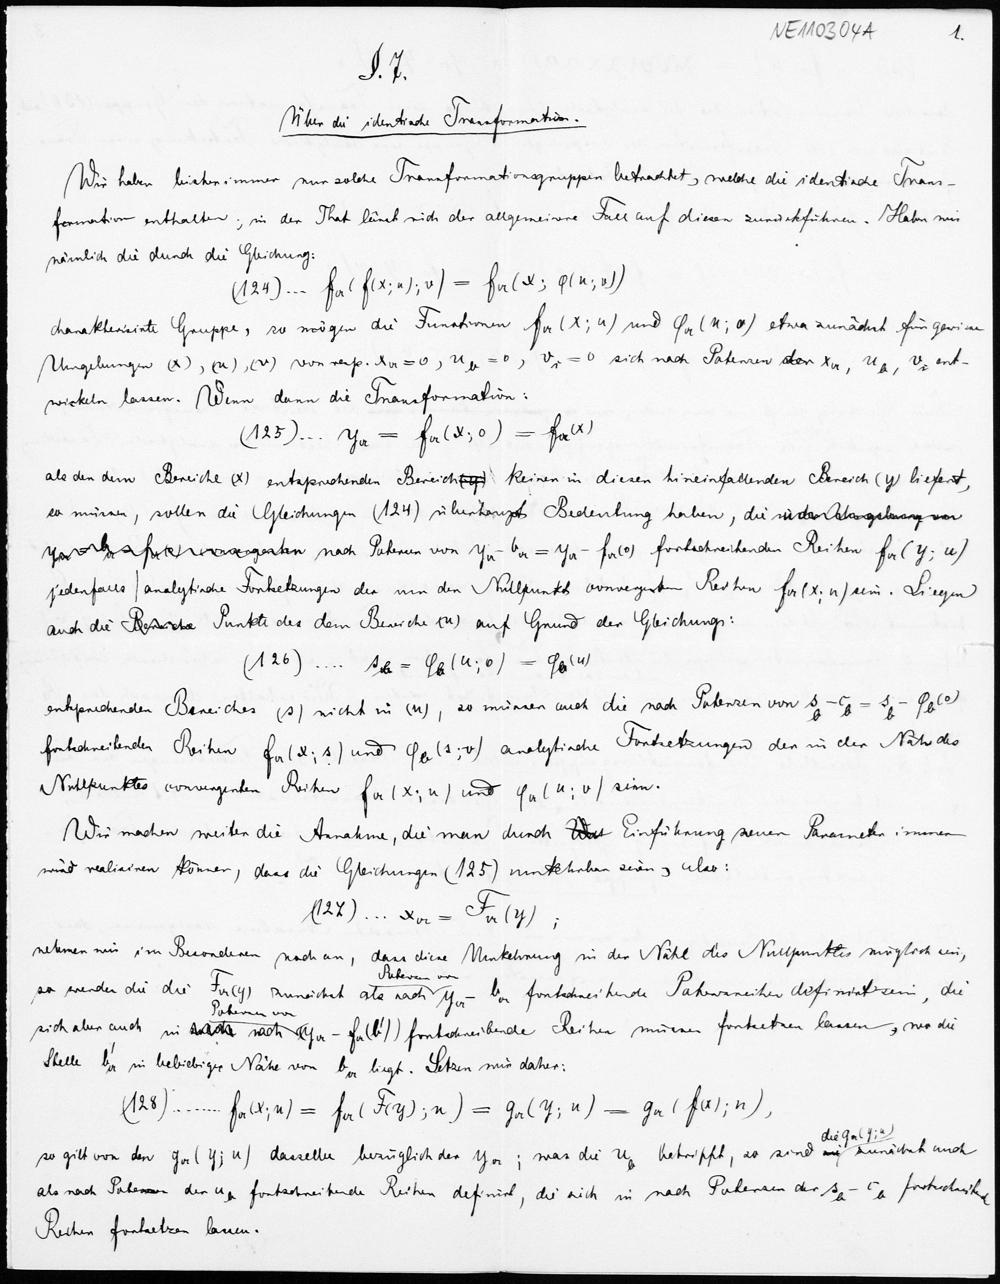 NE110304A 1.
§. 7.
Über die identische Transformation.
Wir haben bisher immer nur solche Transformationsgruppen betrachtet, welche die identische Trans-
formation enthalten; in der That lässt sich der allgemeinere Fall auf diesen zurückführen. Haben wir
nämlich die durch die Gleichung:
(124)... fα(f(x;u);v) = fα(x; φ(u;v))
charakterisirte Gruppe, so mögen die Functionen fα(x;u) und φα(u;v) etwa zunächst für gewisse
Umgebungen (x), (u), (v) von resp. xα=0, u =0, v =0 sich nach Potenzen der xα, u , v ent-
wickeln lassen. Wenn dann die Transformation:
(125)... yα = fα(x;0) = fα(x)
als den dem Bereiche (x) entsprechenden Bereich (y) keinen in diesen hineinfallenden Bereich (y) liefert,
so müssen, sollen die Gleichungen (124) überhaupt Bedeutung haben, die in der Umgebung von
nach Potenzen von yα-bα = yα-fα(0) fortschreitenden Reihen fα(y;u)
jedenfalls analytische Fortsetzungen der um den Nullpunkt convergenten Reihen fα(x;u) sein. Liegen
auch die Bereiche Punkte des dem Bereiche (u) auf Grund der Gleichungs:
(126).... sb = φb(u;0) = φb(u)
entsprechenden Bereiches (s) nicht in (u), so müssen auch die nach Potenzen von sb-cb = sb-φb(0)
fortschreitenden Reihen fα(x;s) und φb(s;v) analytische Fortsetzungen der in der Nähe des
Nullpunktes convergenten Reihen fα(x;u) und φα(u;v) sein.
Wir machen weiter die Annahme, die man durch Einführung neuer Parameter immer
wird realisiren können, dass die Gleichungen (125) umkehrbar seien, also:
(127)... xα = Fα(y) ;
nehmen wir im Besonderen noch an, dass diese Umkehrung in der Nähe des Nullpunktes möglich sei,
so werden die die Fα(y) zunächst als nach Potenzen von yα-bα fortschreitende Potenzreihen definirt sein, die
sich aber auch in nach Potenzen von (yα-fα(b')) fortschreitende Reihen müssen fortsetzen lassen, wo die
Stelle b'α in beliebiger Nähe von bα liegt. Setzen wir daher:
(128)....... fα(x;u) = fα(F(y);u) = gα(y;u) = gα(f(x);u),
so gilt von den gα(y;u) dasselbe bezüglich der yα; was die ub betrifft, so sind die gα(y;u) zunächst auch
als nach Potenzen der ub fortschreitende Reihen definirt, die sich in nach Potenzen der sb-cb fortschreitende
Reihen fortsetzen lassen.